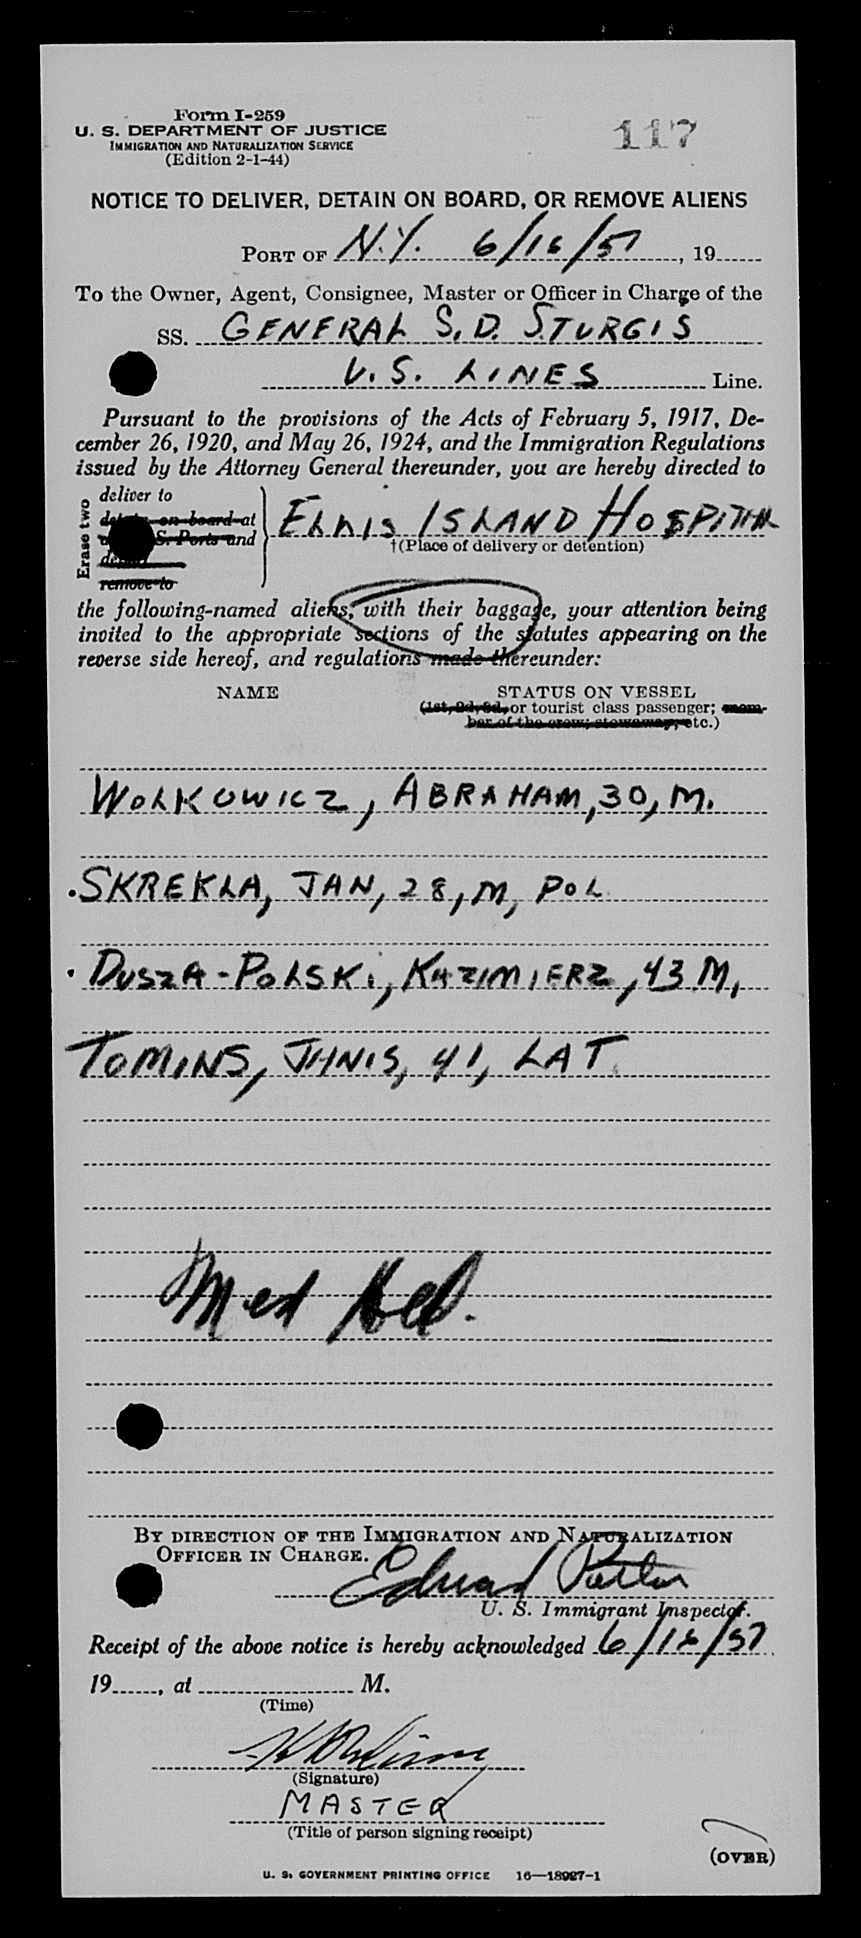 Form I-259
U. S. DEPARTMENT OF JUSTICE
IMMIGRATION AND NATURALIZATION SERVICE
(Edition 2-1-44)
117
NOTICE TO DELIVER, DETAIN ON BOARD, OR REMOVE ALIENS
PORT OF N.Y. 6/16/51, 19
To the Owner, Agent, Consignee, Master or Officer in Charge of the
SS. GENERAL S.D. STURGIS
U.S. LINES Line.
Pursuant to the provisions of the Acts of February 5, 1917, De-
cember 26, 1920, and May 26, 1924, and the Immigration Regulations
issued by the Attorney General thereunder, you are hereby directed to
Erase two
deliver to
detain on board at
S. Ports and
remove to
ELLIS ISLAND HOSPITAL
†(Place of delivery or detention)
the following-named aliens, with their baggage, your attention being
invited to the appropriate sections of the statutes appearing on the
reverse side hereof, and regulations made thereunder:
NAME STATUS ON VESSEL
(1st, 2d, 3d, or tourist class passenger; mem-
ber of the crew; stowaway, etc.)
WOLKOWICZ, ABRAHAM, 30, M.
SKREKLA, JAN, 28, M, POL
DUSZA-POLSKI, KAZIMIERZ, 43 M,
TOMINS, JANIS, 41, LAT.
Med
BY DIRECTION OF THE IMMIGRATION AND NATURALIZATION
OFFICER IN CHARGE.
Edward
U. S. Immigrant Inspector.
Receipt of the above notice is hereby acknowledged 6/16/51
19, at M.
(Time)
(Signature)
MASTER
(Title of person signing receipt)
(OVER)
U. S. GOVERNMENT PRINTING OFFICE 16—18927-1